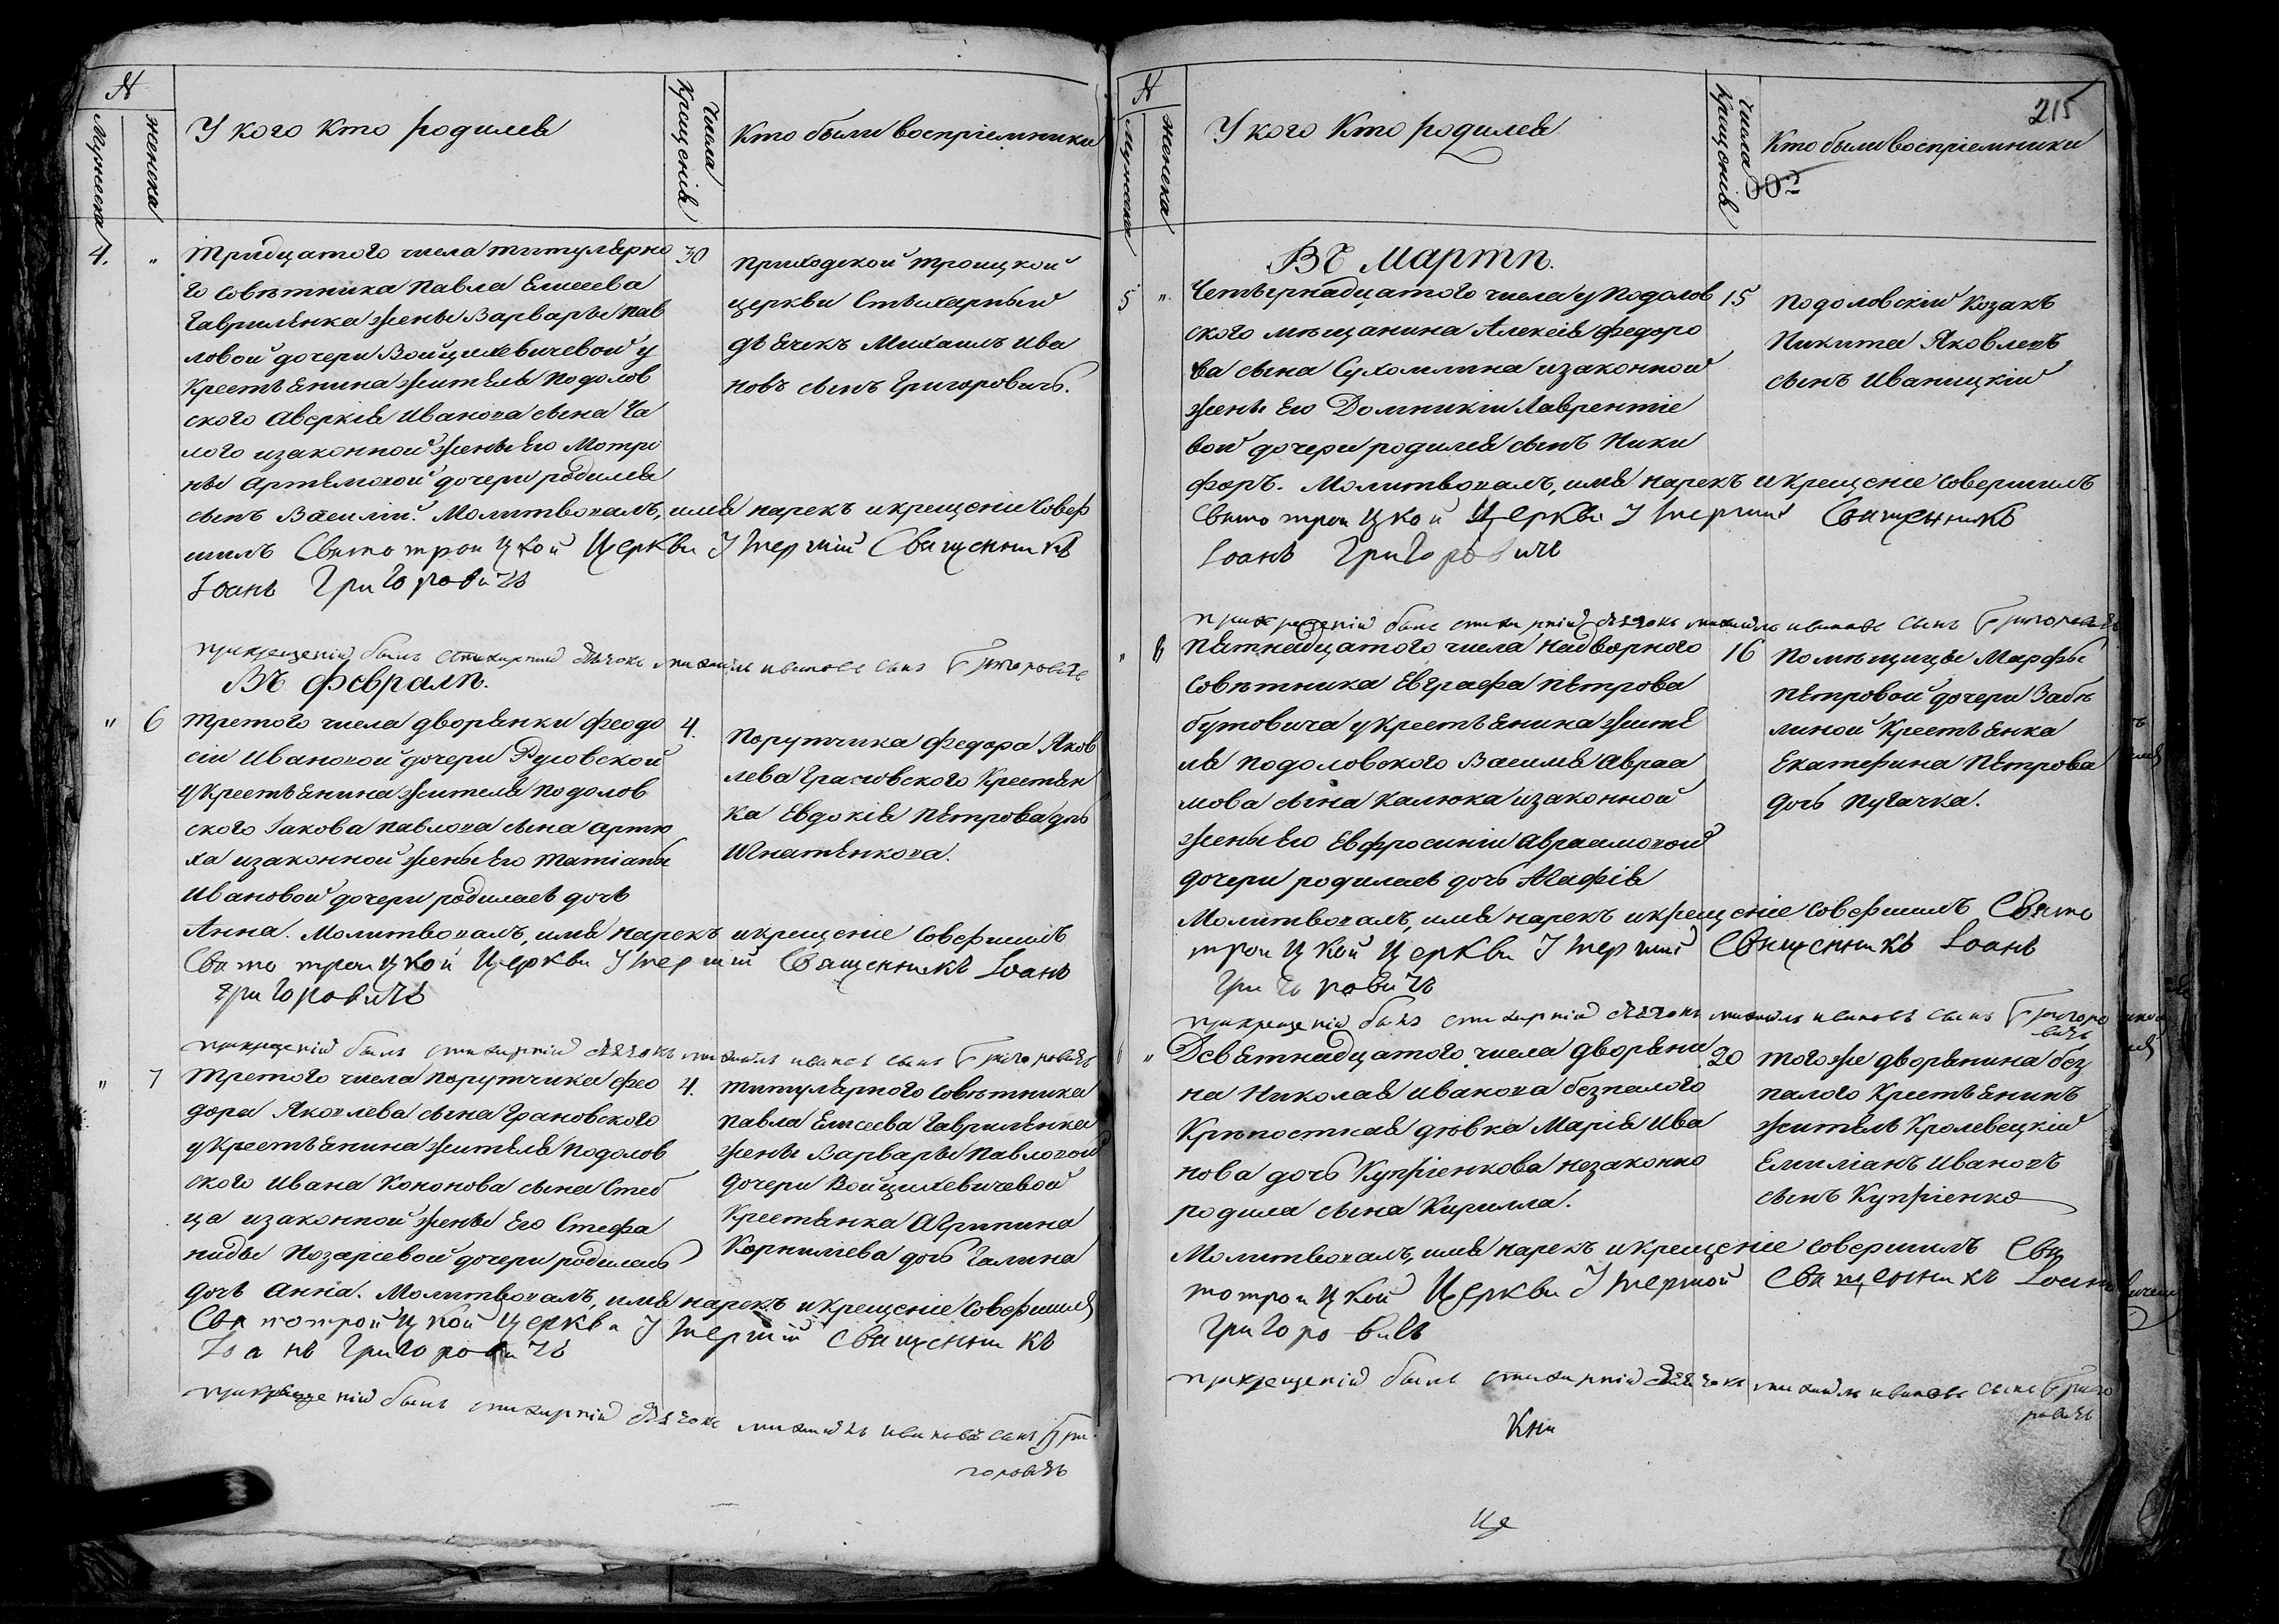 №
Мужеска
женска
У кого кто родился
Числа Крещенія
Кто были воспріемники
4.
"
тридцатого числа титулярно
30
го совѣтника Павла Елисеева
Гавриленка жены Варвары Пав
ловой дочери Войцихевичевой у
крестьянина жителя подолов
ского Аверкія Иванова сына Ча
лого изаконной жены его Мотро
ны Артемовой дочери родился
сынъ Василій. Молитвовалъ, имя нарекъ икрещеніе совер
шилъ Святотроицкой Церкви Ітерчий Священникъ
Іоанъ Григоровичъ
приходской троицкой
церкви Стыхарный
дьячекъ Михаилъ Ива
новъ сынъ Григоровичъ.
прикрещеній былъ стихирній дьячокъ михайлъ ивановъ сынъ Григоровичъ
Въ февралѣ.
"
6
третого числа дворянки феодо
4.
сіи Ивановой дочери Руновской
укрестьянина жителя подолов
ского Іакова Павлова сына Артю
ха изаконной жены его татіаны
Ивановой дочери родилась дочь
Анна. Молитвовалъ, имя нарекъ икрещеніе совершилъ
Святотроицкой Церкви Ітерчий Священникъ Іоанъ
Григоровичъ
Порутчика Федора Яков
лева Грановского крестьян
ка Евдокія Петрова дочь
Игнатенкова.
прикрещеній былъ стихирній дьячокъ михайлъ ивановъ сынъ Григоровичъ
"
7
третого числа порутчика фео
4.
дора Яковлева сына Грановского
укрестьянина жителя подолов
ского Ивана Кононова сына Стеб
ца изаконной жены его Стефа
ниды Назаріевой дочери родилась
дочь Анна. Молитвовалъ, имя нарекъ икрещеніе совершилъ
Святотройцкой Церкви Ітерчий Священникъ
Іоанъ Григоровичъ
титулярного совѣтника
павла Елисеева Гавриленка
жены Варвары Павловой
дочери Войцихевичевой
крестьянка Агрипина
Корнилиева дочь Галина
прикрещеній былъ стихирній дьячокъ михайлъ ивановъ сынъ Гри
горовичъ
215
№
Мужеска
женска
У кого Кто родился
Числа Крещенія
Кто были воспріемники
Въ Мартѣ.
5
"
Четырнадцатого числа уподолов
15
ского мѣщанина Алексія Федоро
ва сына Сухолина изаконной
жены Его Домникіи Лаврентіе
вой дочери родился сынъ Ники
форъ. Молитвовалъ, имя нарекъ икрещеніе совершилъ
Святотроицкой Церкви Ітерчий Священникъ
Іоанъ Григоровичъ
подоловскій козакъ
Никита Яковлевъ
сынъ Иваницкій
прикрещеній былъ стихирній дьячокъ михайлъ ивановъ сынъ Григоровичъ
"
6
Пятнадцатого числа Надворного
16
Совѣтника Евграфа Петрова
бутовича укрестьянина жите
ля подоловского Василя Авраа
мова сына Калюка изаконной
жены Его Евфросиніи Авраамовой
дочери родилась дочь Агафія
Молитвовалъ, имя нарекъ икрещеніе совершилъ Свято
троицкой Церкви Ітерчий Священникъ Іоанъ
Григоровичъ
Помѣщицы Марфы
Петровой дочери Забѣ
линой Крестьянка
Екатерина Петрова
дочь Пугачка.
прикрещеній былъ стихирній дьячокъ михайлъ ивановъ сынъ Григоро
вичъ
6
"
Девятнадцатого числа дворяни
20
на Николая Иванова безпалого
Крѣпостная дѣвка Марія Ива
нова дочь Купріенкова незаконно
родила сына Кирилла.
Молитвовалъ, имя нарекъ икрещеніе совершилъ Свя
тотроицкой Церкви Ітерчой Священникъ Іоанъ
Григоровичъ
тогоже дворянина без
палого Крестьянинъ
житель Кролевецкій
Емиліанъ Ивановъ
сынъ Купріенко
прикрещеній былъ стихирній дьячокъ михайлъ ивановъ сынъ Григо
ровичъ
Кни
Це